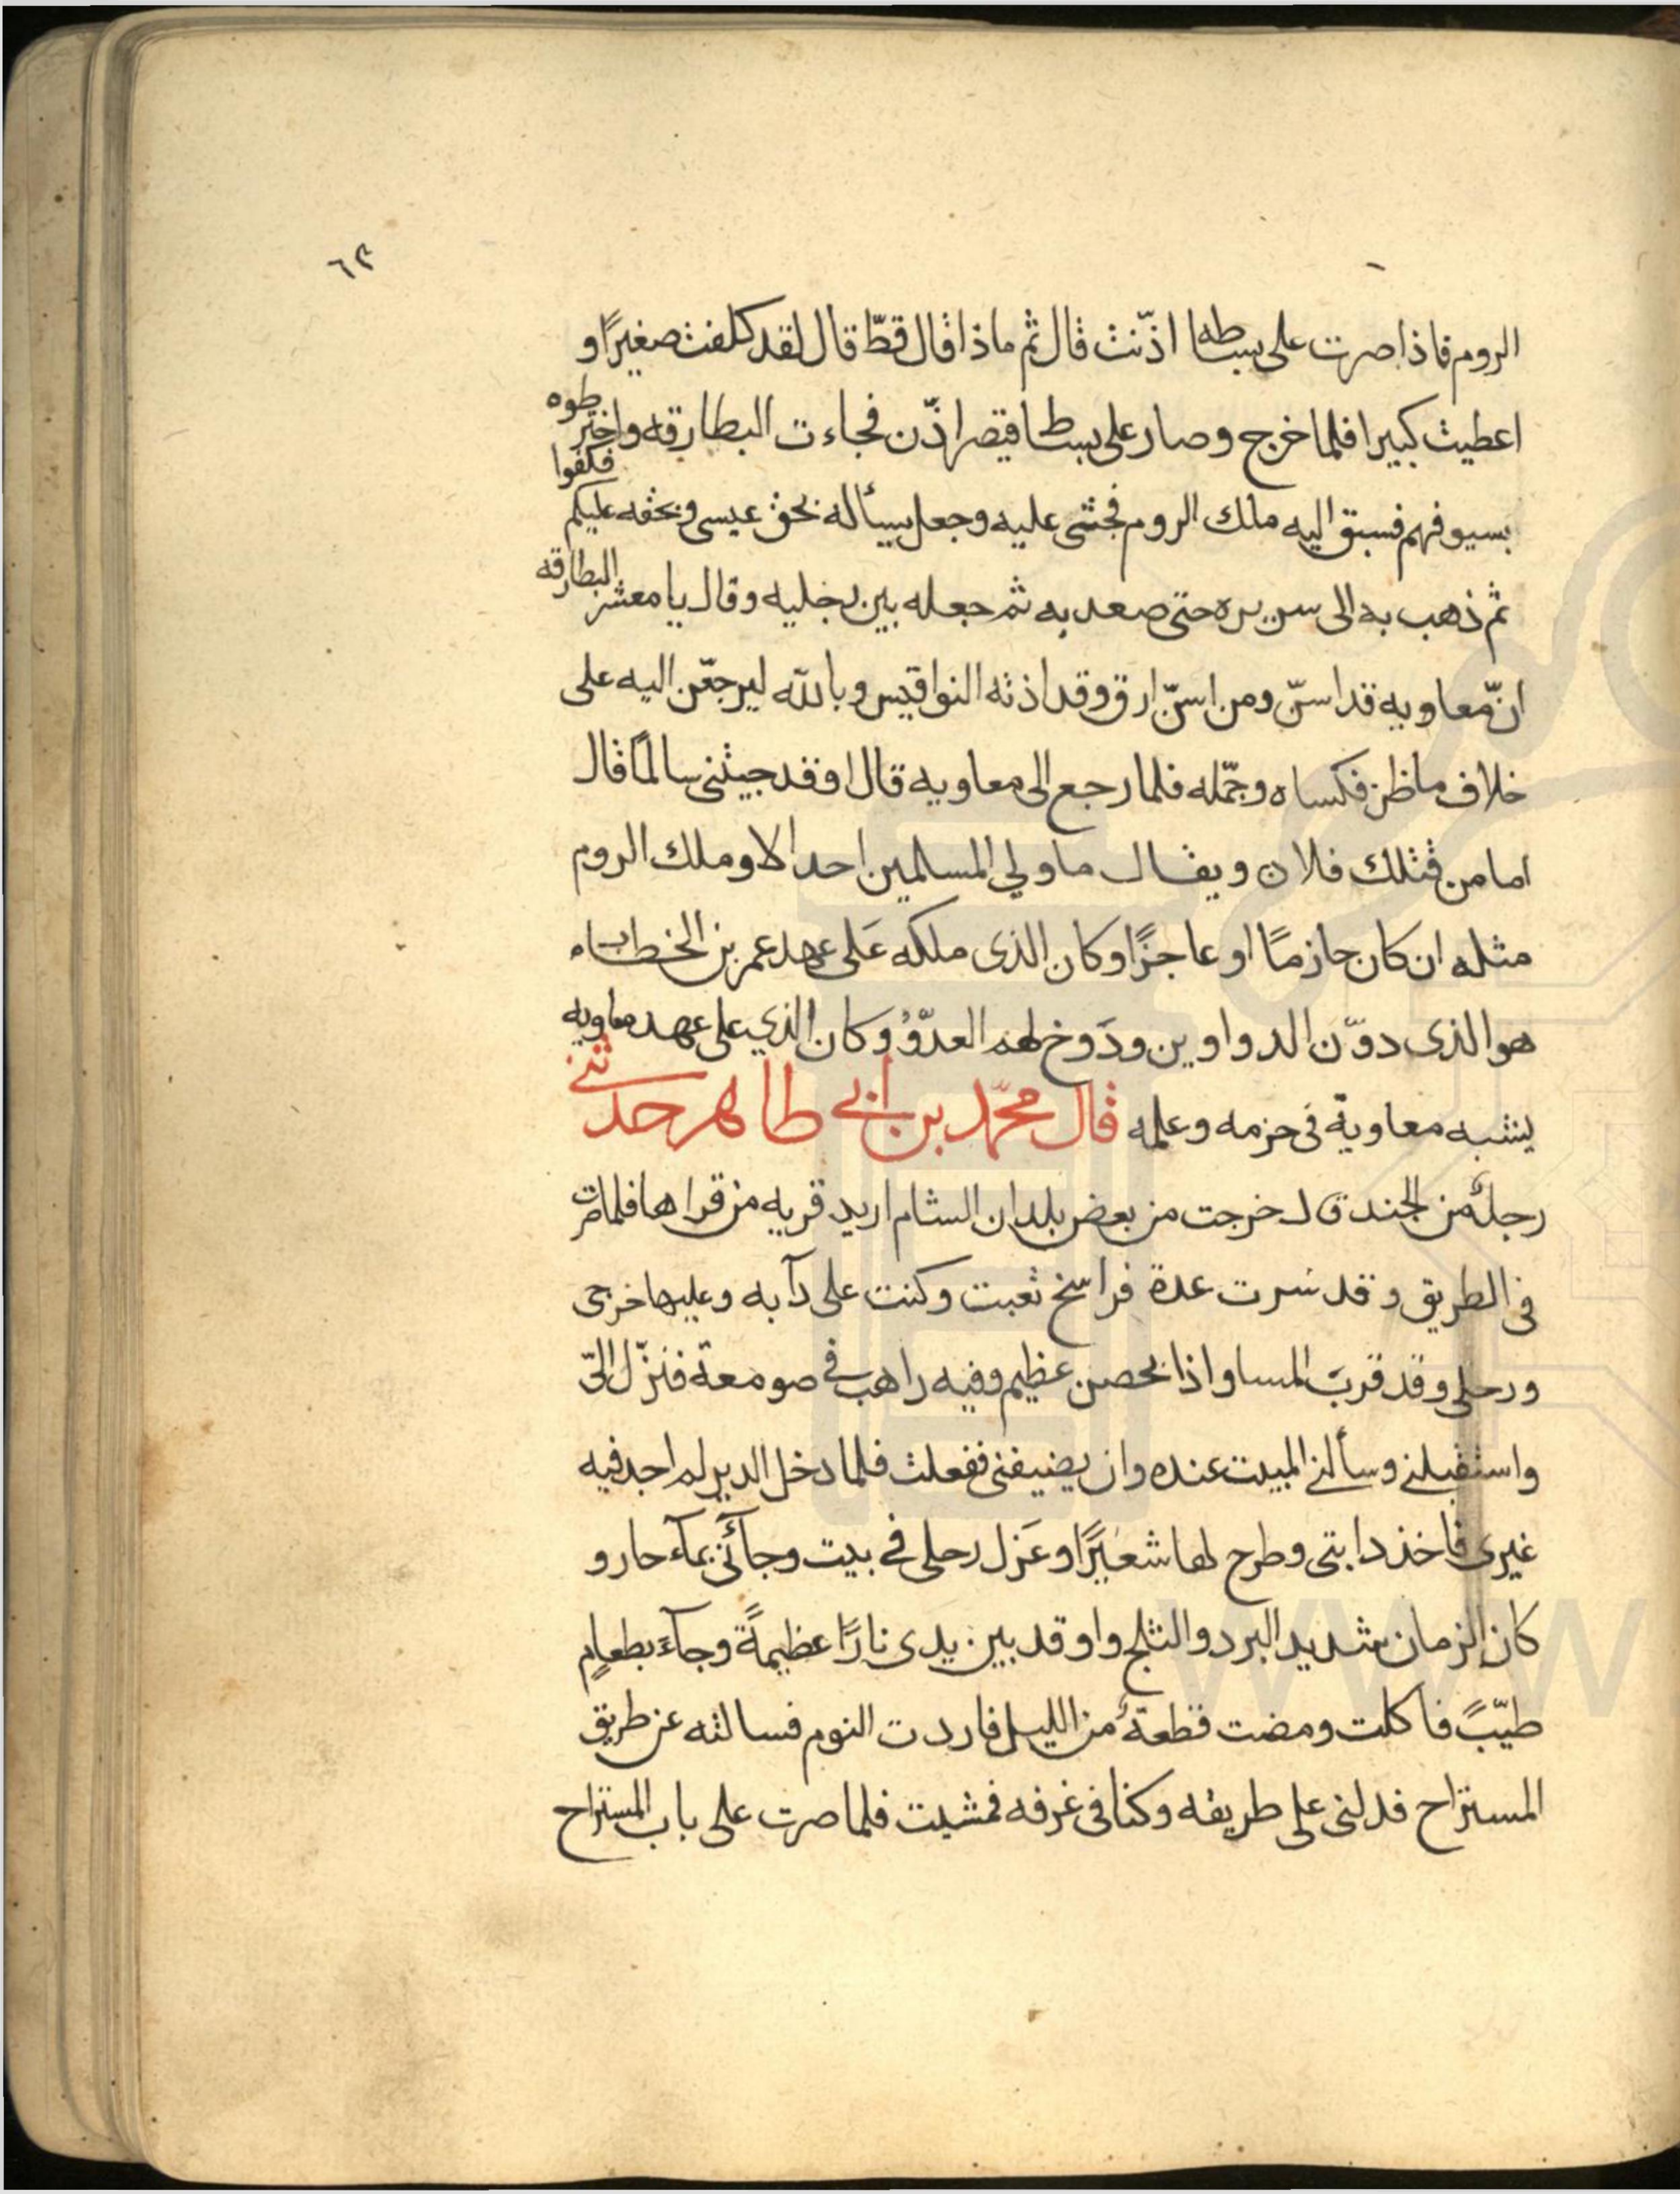 ٦٣
الروم فاذا صرت على بساطه اذّنت قال ثم ماذا قال قطّ قال لقد كلفت صغيرًا و
اعطيت كبيرا فلما خرج وصار على بساط قيصر اذّن فجاءت البطارقه واخترطوه
بسيوفهم فسبق اليه ملك الروم فجثى عليه وجعل يسأله بحق عيسى وبحقه عليكم فكفوا
ثم ذهب به الى سريره حتى صعد به ثم جعله بين رجليه وقال يا معشر البطارقه
انّ معاويه قد اسنّ ومن اسنّ ارق وقد اذته النواقيس وبالله ليرجعّن اليه على
خلاف ما ظن فكساه وجمّله فلما رجع الى معاويه قال اوقد جيتنى سالمًا قال
اما من قتلك فلا ن ويقال ما ولي المسلمين احد الا وملك الروم
مثله ان كان حازمًا او عاجزًا وكان الذى ملكه عَلى عهد عمر بن الخطاب
هو الذى دوّن الدواوين ودَوخ لهم العدّوُ وكان الذي على عهد معاويه
يشبه معاوية فى حزمه وعلمه قال محمّد بن أبي طاهر حدثني
رجلٌ من الجند قال خرجت من بعض بلدان الشام اريد قرية من قراها فلما صرت
فى الطريق وقد سرت عدة فراسخ تعبت وكنت على دآبه وعليها خرجى
ورحلى وقد قربَ المسا واذا بحصن عظيم وفيه راهب في صومعة فنزّل اليّ
واستقبلنى وسألني المبيت عنده وان يضيفنى ففعلت فلما دخل الدير لم اجد فيه
غيرى فاخذ دابتى وطرح لها شعيرًا وعَزل رحلى فى بيت وجآئني بمآء حار و
كان الزمان شديد البرد والثلج واوقد بين يدى نارًا عظيمةً وجآء بطعامٍ
طيّبً فاكلت ومضت قطعةٌ من الليل فاردت النوم فسالته عن طريق
المستراح فدلنى على طريقه وكنا فى غرفه فمشيت فلما صرت على باب المستراح